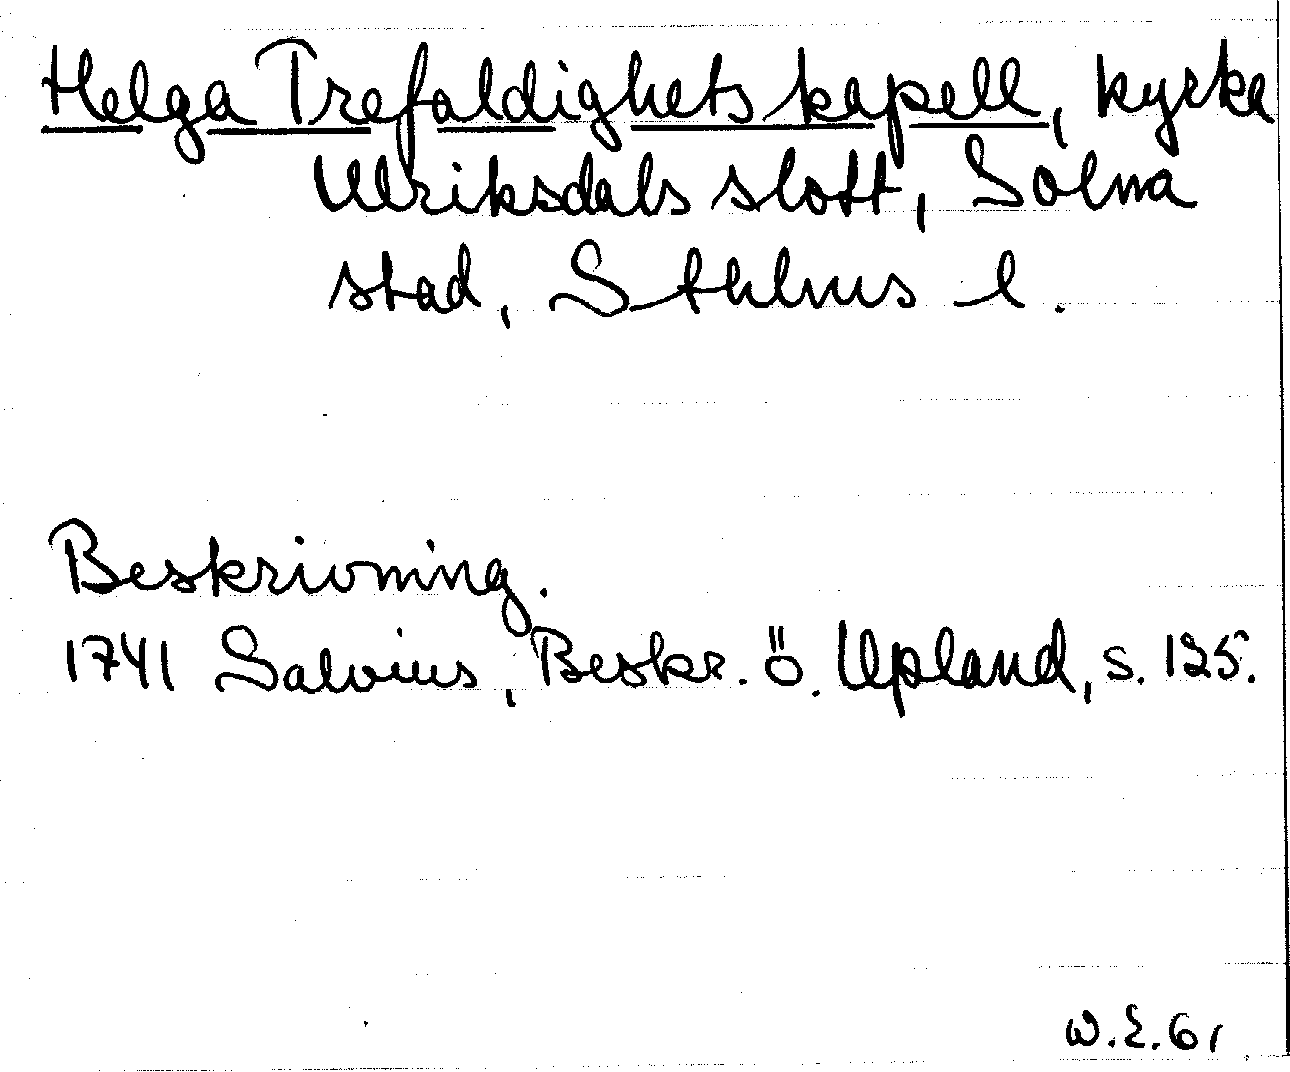 Helga Trefaldighetskapell, kyrka
Ulriksdals slott, Solna
stad, Sthlms l.
Beskrivning.
1741 Salvius, Beskr. ö. Upland, s. 125.
W.E.61